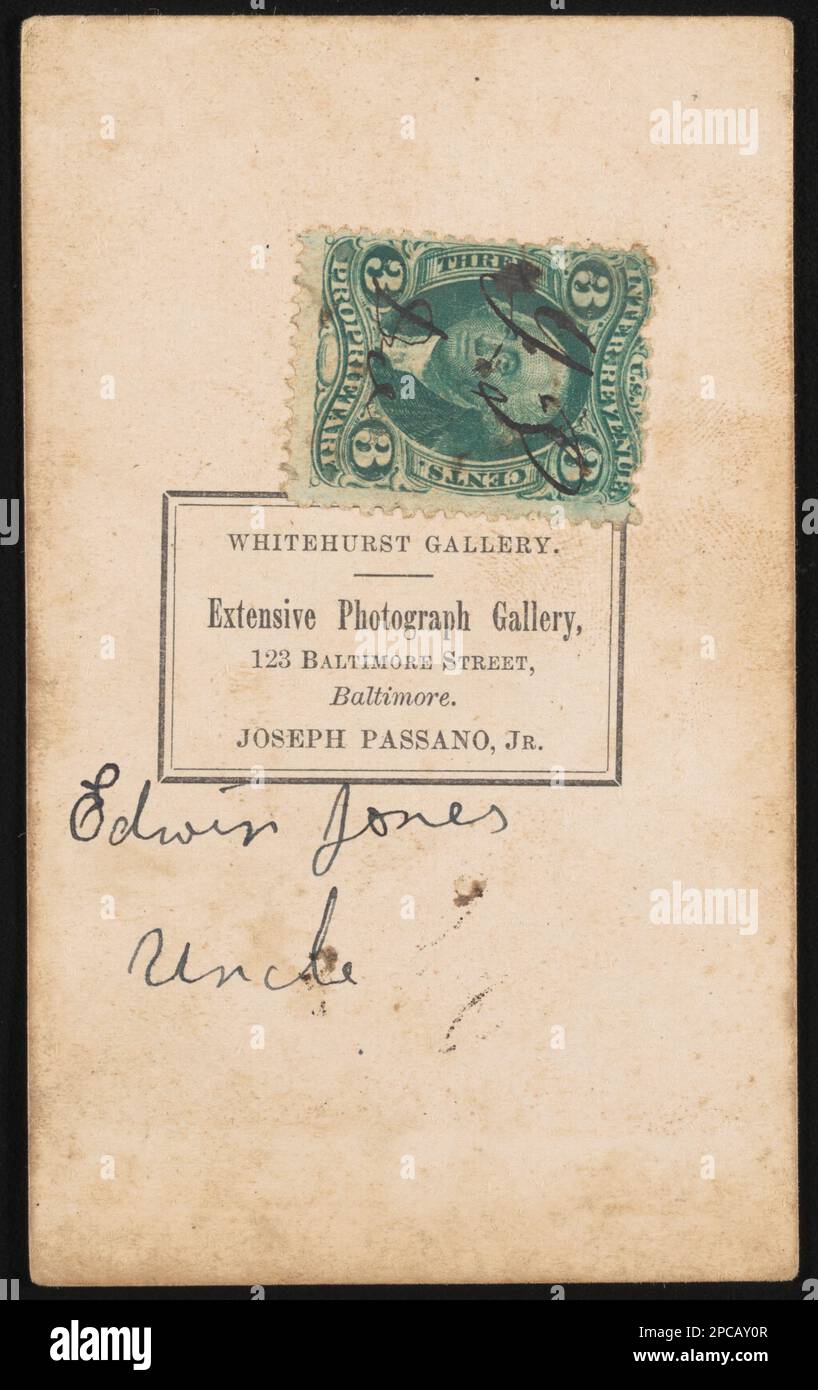 U.S. INTER. REVENUE
THREE
CENTS.
PROPRIETARY
3 3
3 3
WHITEHURST GALLERY.
Extensive Photograph Gallery,
123 BALTIMORE STREET,
Baltimore.
JOSEPH PASSANO, JR.
Edwin Jones
Uncle
alamy
alamy
Image ID: 2PCAY0R
www.alamy.com